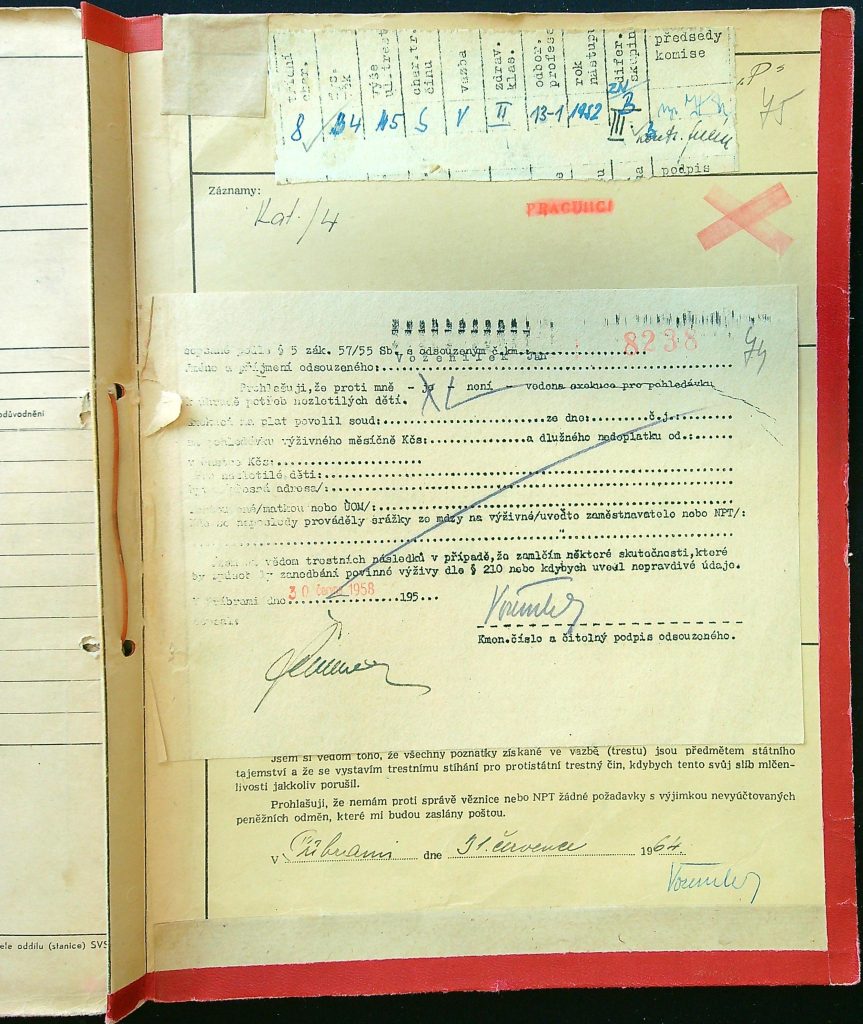 předsedy
komise
třídní
char.
výše
ul.trest
char.tr.
činu
vazba
zdrav.
klas.
odbor.
profese
rok
nástupu
difer.
skupin
"P"
75
8 34 15 S V II 13-1 1952 III B
podpis
Záznamy:
Kat./4
PRACUJÍCÍ
8238
sepsané podle § 5 zák. 57/55 Sb. s odsouzeným č.km.
Vozenílek Jan
Jméno a příjmení odsouzeného:
Prohlašuji, že proti mně - je - není - vedena exekuce pro pohledávku
k úhradě potřeb nezletilých dětí.
Exekuci na plat povolil soud: ze dne: č.j.:
na pohledávku výživného měsíčně Kčs: a dlužného nedoplatku od.:
v částce Kčs:
děti:
adresa/:
/matkou nebo ÚOM/:
naposledy prováděly srážky ze mzdy na výživné/uveďte zaměstnavatele nebo NPT/:
Jsem si vědom trestních následků v případě, že zamlčím některé skutečnosti, které
by způsobily zanedbání povinné výživy dle § 210 nebo kdybych uvedl nepravdivé údaje.
V Příbrami dne 30 června 1958 195...
Kmen.číslo a čitelný podpis odsouzeného.
Jsem si vědom toho, že všechny poznatky získané ve vazbě (trestu) jsou předmětem státního
tajemství a že se vystavím trestnímu stíhání pro protistátní trestný čin, kdybych tento svůj slib mlčen-
livosti jakkoliv porušil.
Prohlašuji, že nemám proti správě věznice nebo NPT žádné požadavky s výjimkou nevyúčtovaných
peněžních odměn, které mi budou zaslány poštou.
V Příbrami dne 31. července 1964
odůvodnění
ele oddílu (stanice) SVS